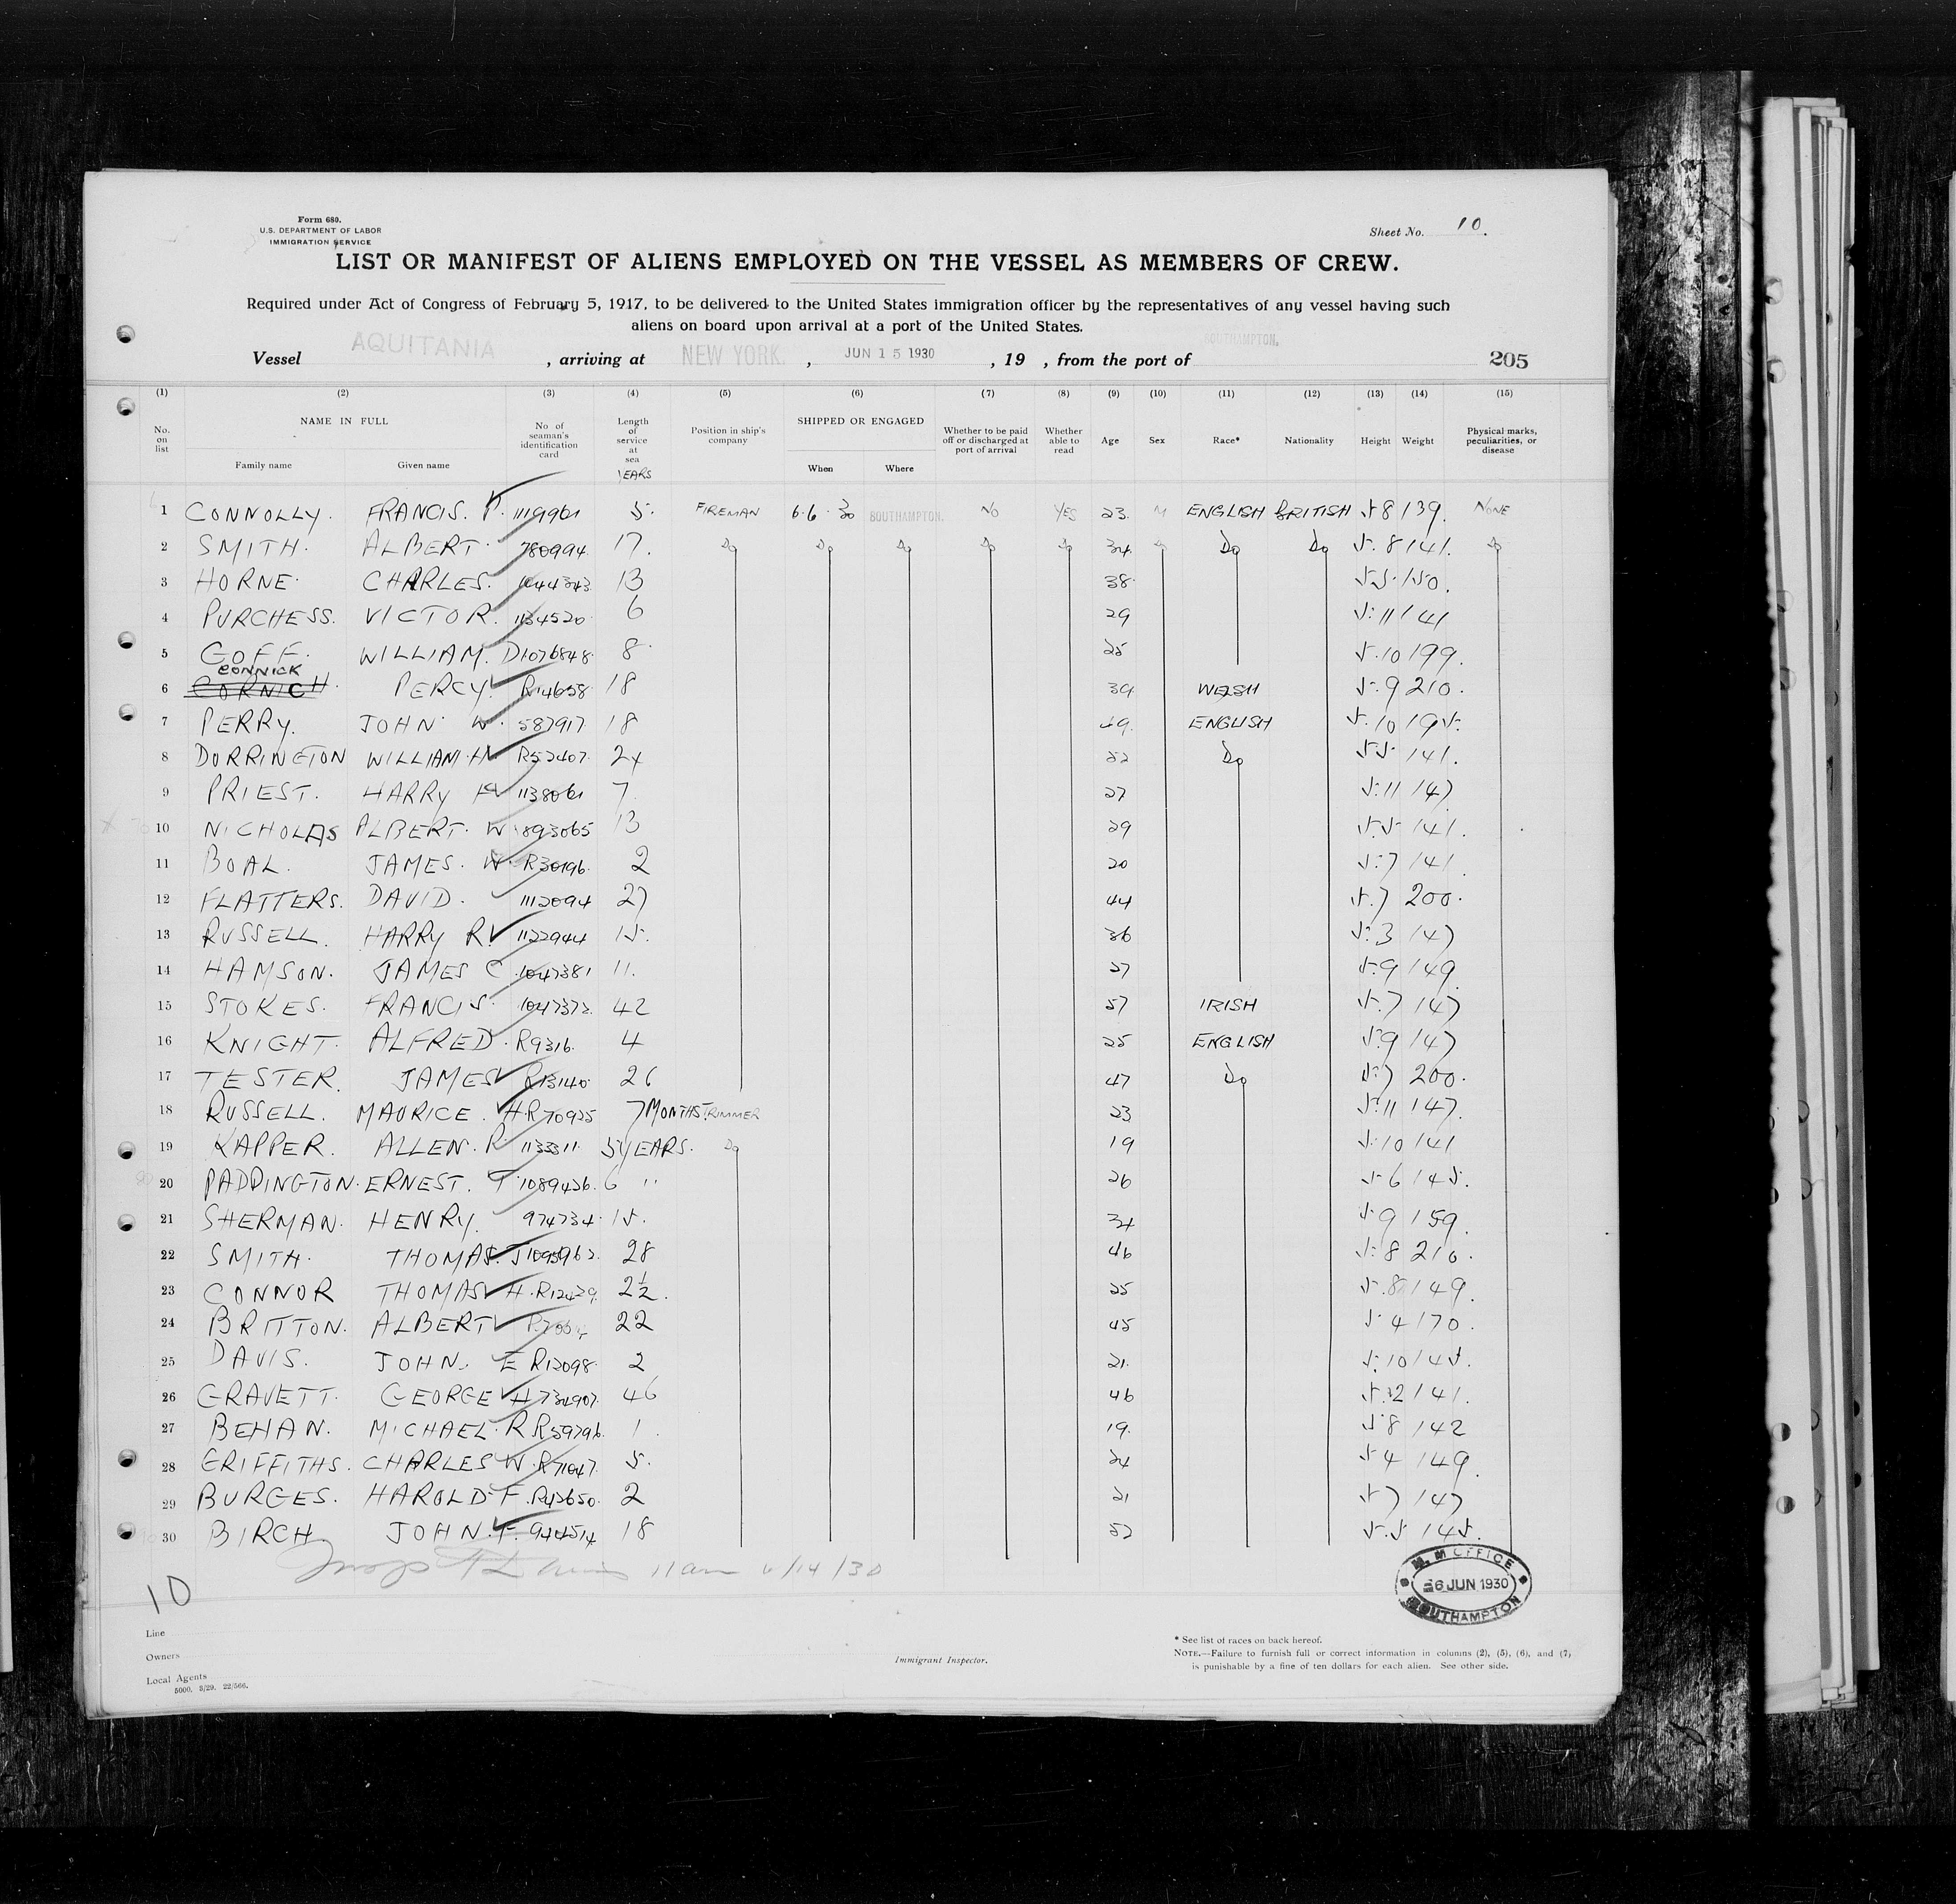 Form 680.
U.S. DEPARTMENT OF LABOR
IMMIGRATION SERVICE
Sheet No. 10.
LIST OR MANIFEST OF ALIENS EMPLOYED ON THE VESSEL AS MEMBERS OF CREW.
Required under Act of Congress of February 5, 1917, to be delivered to the United States immigration officer by the representatives of any vessel having such
aliens on board upon arrival at a port of the United States.
Vessel AQUITANIA, arriving at NEW YORK., JUN 15 1930, 19 , from the port of SOUTHAMPTON. 205
(1) (2) (3) (4) (5) (6) (7) (8) (9) (10) (11) (12) (13) (14) (15)
No. on list NAME IN FULL Family name Given name No of seaman's identification card Length of service at sea YEARS Position in ship's company SHIPPED OR ENGAGED When Where Whether to be paid off or discharged at port of arrival Whether able to read Age Sex Race* Nationality Height Weight Physical marks, peculiarities, or disease
1 CONNOLLY. FRANCIS. P. 1119961 5. FIREMAN 6.6.30 SOUTHAMPTON. NO YES 23. M ENGLISH BRITISH 5 8 139. NONE
2 SMITH. ALBERT. 780994. 17. Do Do Do Do Do 34. Do Do Do 5. 8 141. Do
3 HORNE. CHARLES. 13 38. 5.5. 150.
4 PURCHESS. VICTOR. 1134520. 6 29 5.11 141
5 GOFF. WILLIAM. D 1076848. 8. 25 5.10 199.
6 CORNICH. CONNICK PERCY. R14658 18 39 WELSH 5.9 210.
7 PERRY. JOHN W. 587917 18 49. ENGLISH 5.10 195.
8 DORRINGTON WILLIAM. H R52407. 24 52 Do 5.5. 141.
9 PRIEST. HARRY 1138061 7. 27 5.11 147
10 NICHOLAS ALBERT. W 893065 13 29 5.5 141.
11 BOAL. JAMES. W. R30196. 2 20 5.7 141
12 FLATTERS. DAVID. 1112094 27 44 5.7 200.
13 RUSSELL. HARRY R. 1122944 15. 36 5.3 147
14 HAMSON. JAMES C. 1047381 11. 27 5.9 149
15 STOKES. FRANCIS. 1047372. 42 57 IRISH 5.7 147
16 KNIGHT. ALFRED. R9316. 4 25 ENGLISH 5.9 147
17 TESTER. JAMES R13140. 26 47 Do 5.7 200.
18 RUSSELL. MAURICE. H. R70925 7 MONTHS TRIMMER 23 5.11 147.
19 KAPPER. ALLEN. R 1133311. 5 YEARS. Do 19 5.10 141
20 PADDINGTON. ERNEST. T 1089426. 6 " 26 5 6 145.
21 SHERMAN. HENRY. 974734. 15. 34 5.9 159.
22 SMITH. THOMAS. J 28 46 5.8 210.
23 CONNOR THOMAS H. 2½. 25 5.8 149.
24 BRITTON. ALBERT 22 45 5 4 170.
25 DAVIS. JOHN. E R12098. 2 21. 5.10 145.
26 GRAVETT. GEORGE H 46 46 5.2 141.
27 BEHAN. MICHAEL. R R59796. 1. 19. 5.8 142
28 GRIFFITHS. CHARLES W. R71047. 5. 24 5 4 149.
29 BURGES. HAROLD F. R42650. 2 21 5 7 147
30 BIRCH JOHN. F. 944514 18 52 5.5 145.
11am 6/14/30
10
M. M OFFICE
6 JUN 1930
SOUTHAMPTON
Line
Owners
Local Agents
5000. 8/29. 22/566.
Immigrant Inspector.
* See list of races on back hereof.
NOTE.—Failure to furnish full or correct information in columns (2), (5), (6), and (7)
is punishable by a fine of ten dollars for each alien. See other side.